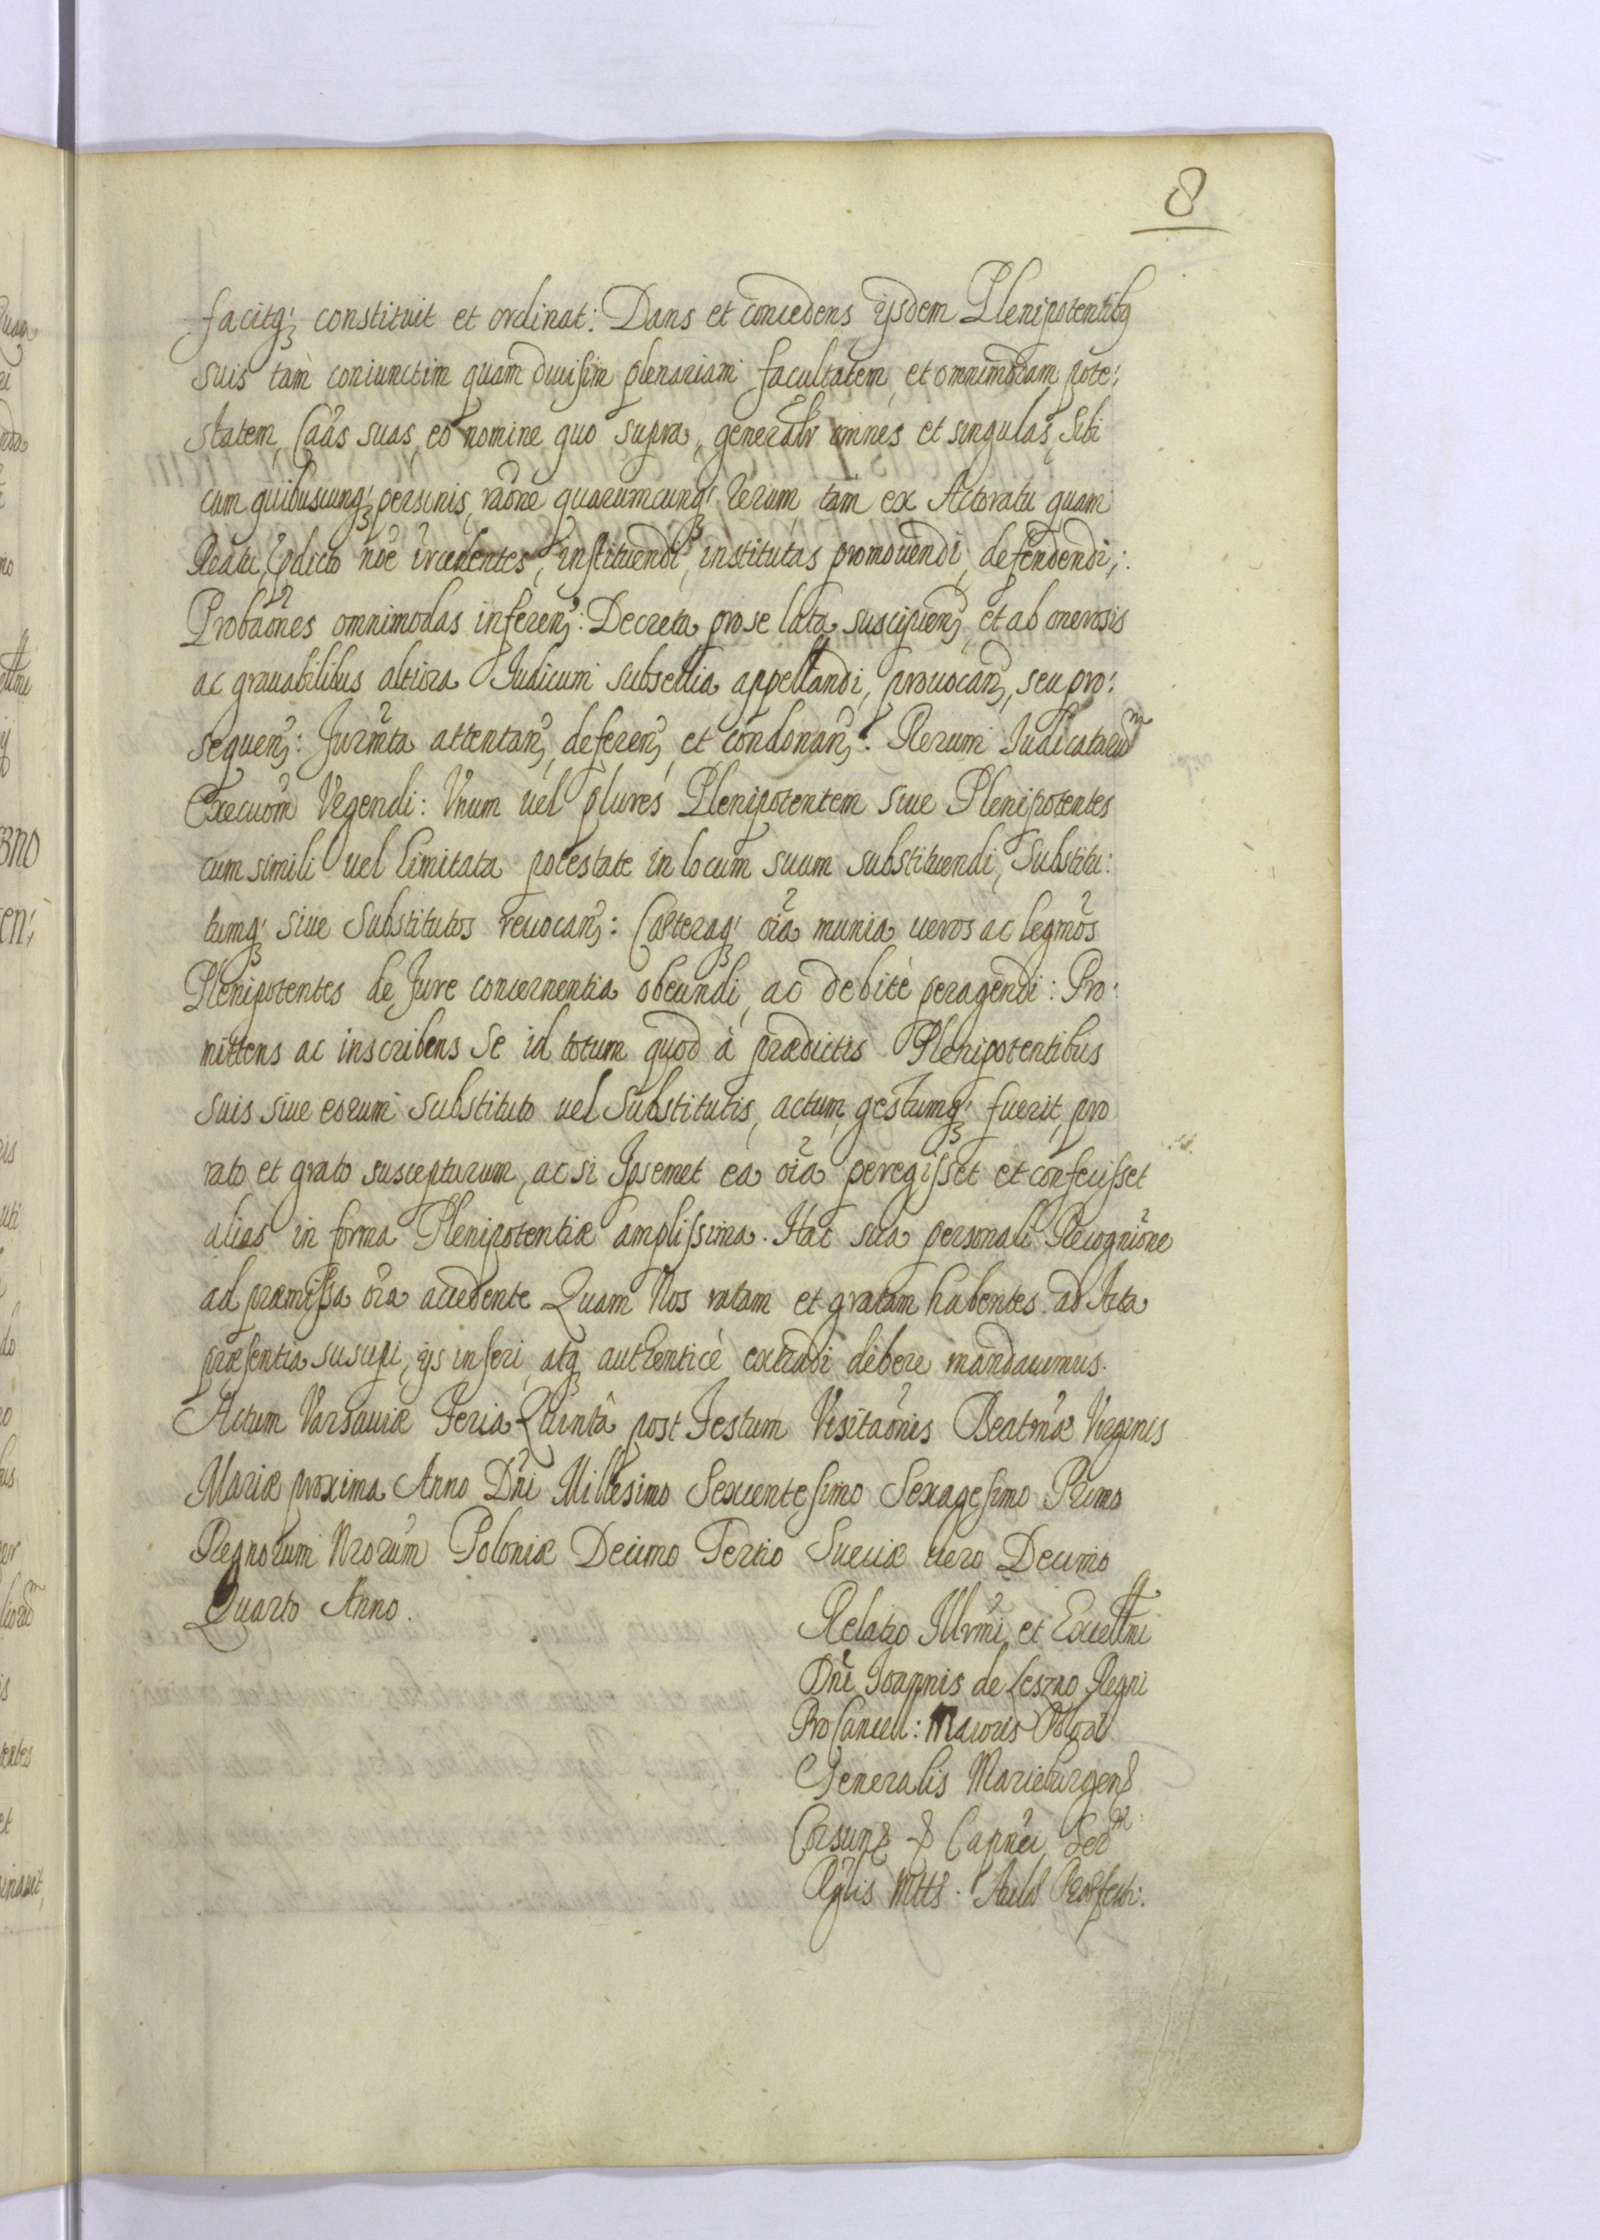 8
facitq; constituit et ordinat: Dans et concedens ijsdem Plenipotentibq
suis tam coniunctim quam diuisim plenariam facultatem, et omnimodam pote:
statem, Cãas suas, eo nomine quo supra, generalr omnes et singulas, Sibi
cum quibuscunq; personis, raõne quarumcunq; rerum, tam ex Actoratu quam
Reatu, pdicto nõe instituendi, institutas promouendi, defendendi;
Probaõnes omnimodas inferen: Decreta pro se lata suscipien, et ab onerosis
ac grauabilibus altiora Judicum subsellia appellandi, prouocan, seu pro:
sequen: Jurmta attentan, deferen, et condonan: Rerum Judicatarum
Execuõm Vrgendi: Vnum uel plures Plenipotentem siue Plenipotentes
cum simili uel limitata potestate in locum suum substituendi, Substitu:
tumq; siue Substitutos reuocan: Cæteraq; oĩa munia ueros ac legmõs
Plenipotentes de Jure concernentia obeundi, ac debitè peragendi: Pro:
mittens ac inscribens se id totum quod à prædictis Plenipotentibus
suis siue eorum Substituto uel Substitutis, actum, gestumq; fuerit, pro
rato et grato suscepturum, ac si Ipsemet ea oĩa peregisset et confecisset
alias in forma Plenipotentiæ amplissima. Hac sua personali Recogniõne
ad præmissa oĩa accedente Quam Nos ratam et gratam habentes ad Acta
præsentia suscipi, ijs inseri, atq; authenticè extradi debere mandauimus.
Actum Varsauiæ Feria Quintâ post Festum Visitaõnis Beatmæ Virginis
Mariæ proxima Anno Dñi Millesimo Sexcentesimo Sexagesimo Primo
Regnorum Nrorum Poloniæ Decimo Tertio Sueciæ uero Decimo
Quarto Anno.
Relatio Illrmi et Excellmi
Dñi Joannis de Leszno Regni
ProCancell: Maioris Poloæ
Generalis Marieburgen
Corsun & Capnei
Rglis Mtts.